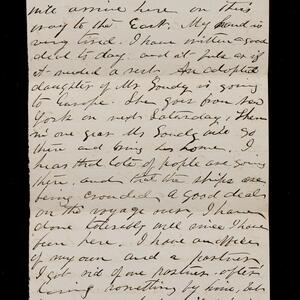 will arrive here on this
way to the East. My hand is
very tired. I have written a good
deal to day. and it feels as if
it needed a rest. An adopted
daughter of Mr Gondy is going
to Europe. She goes from New
York on next Saturday. Then
in one year Mr Gondy will go
there and bring her home. I
hear that lots of people are going
there, and that the ships are
being crowded a good deal
on the voyage over, I have
done tolerably well since I have
been here. I have an office
of my own and a partner
I got rid of one partner after
losing something by him, but